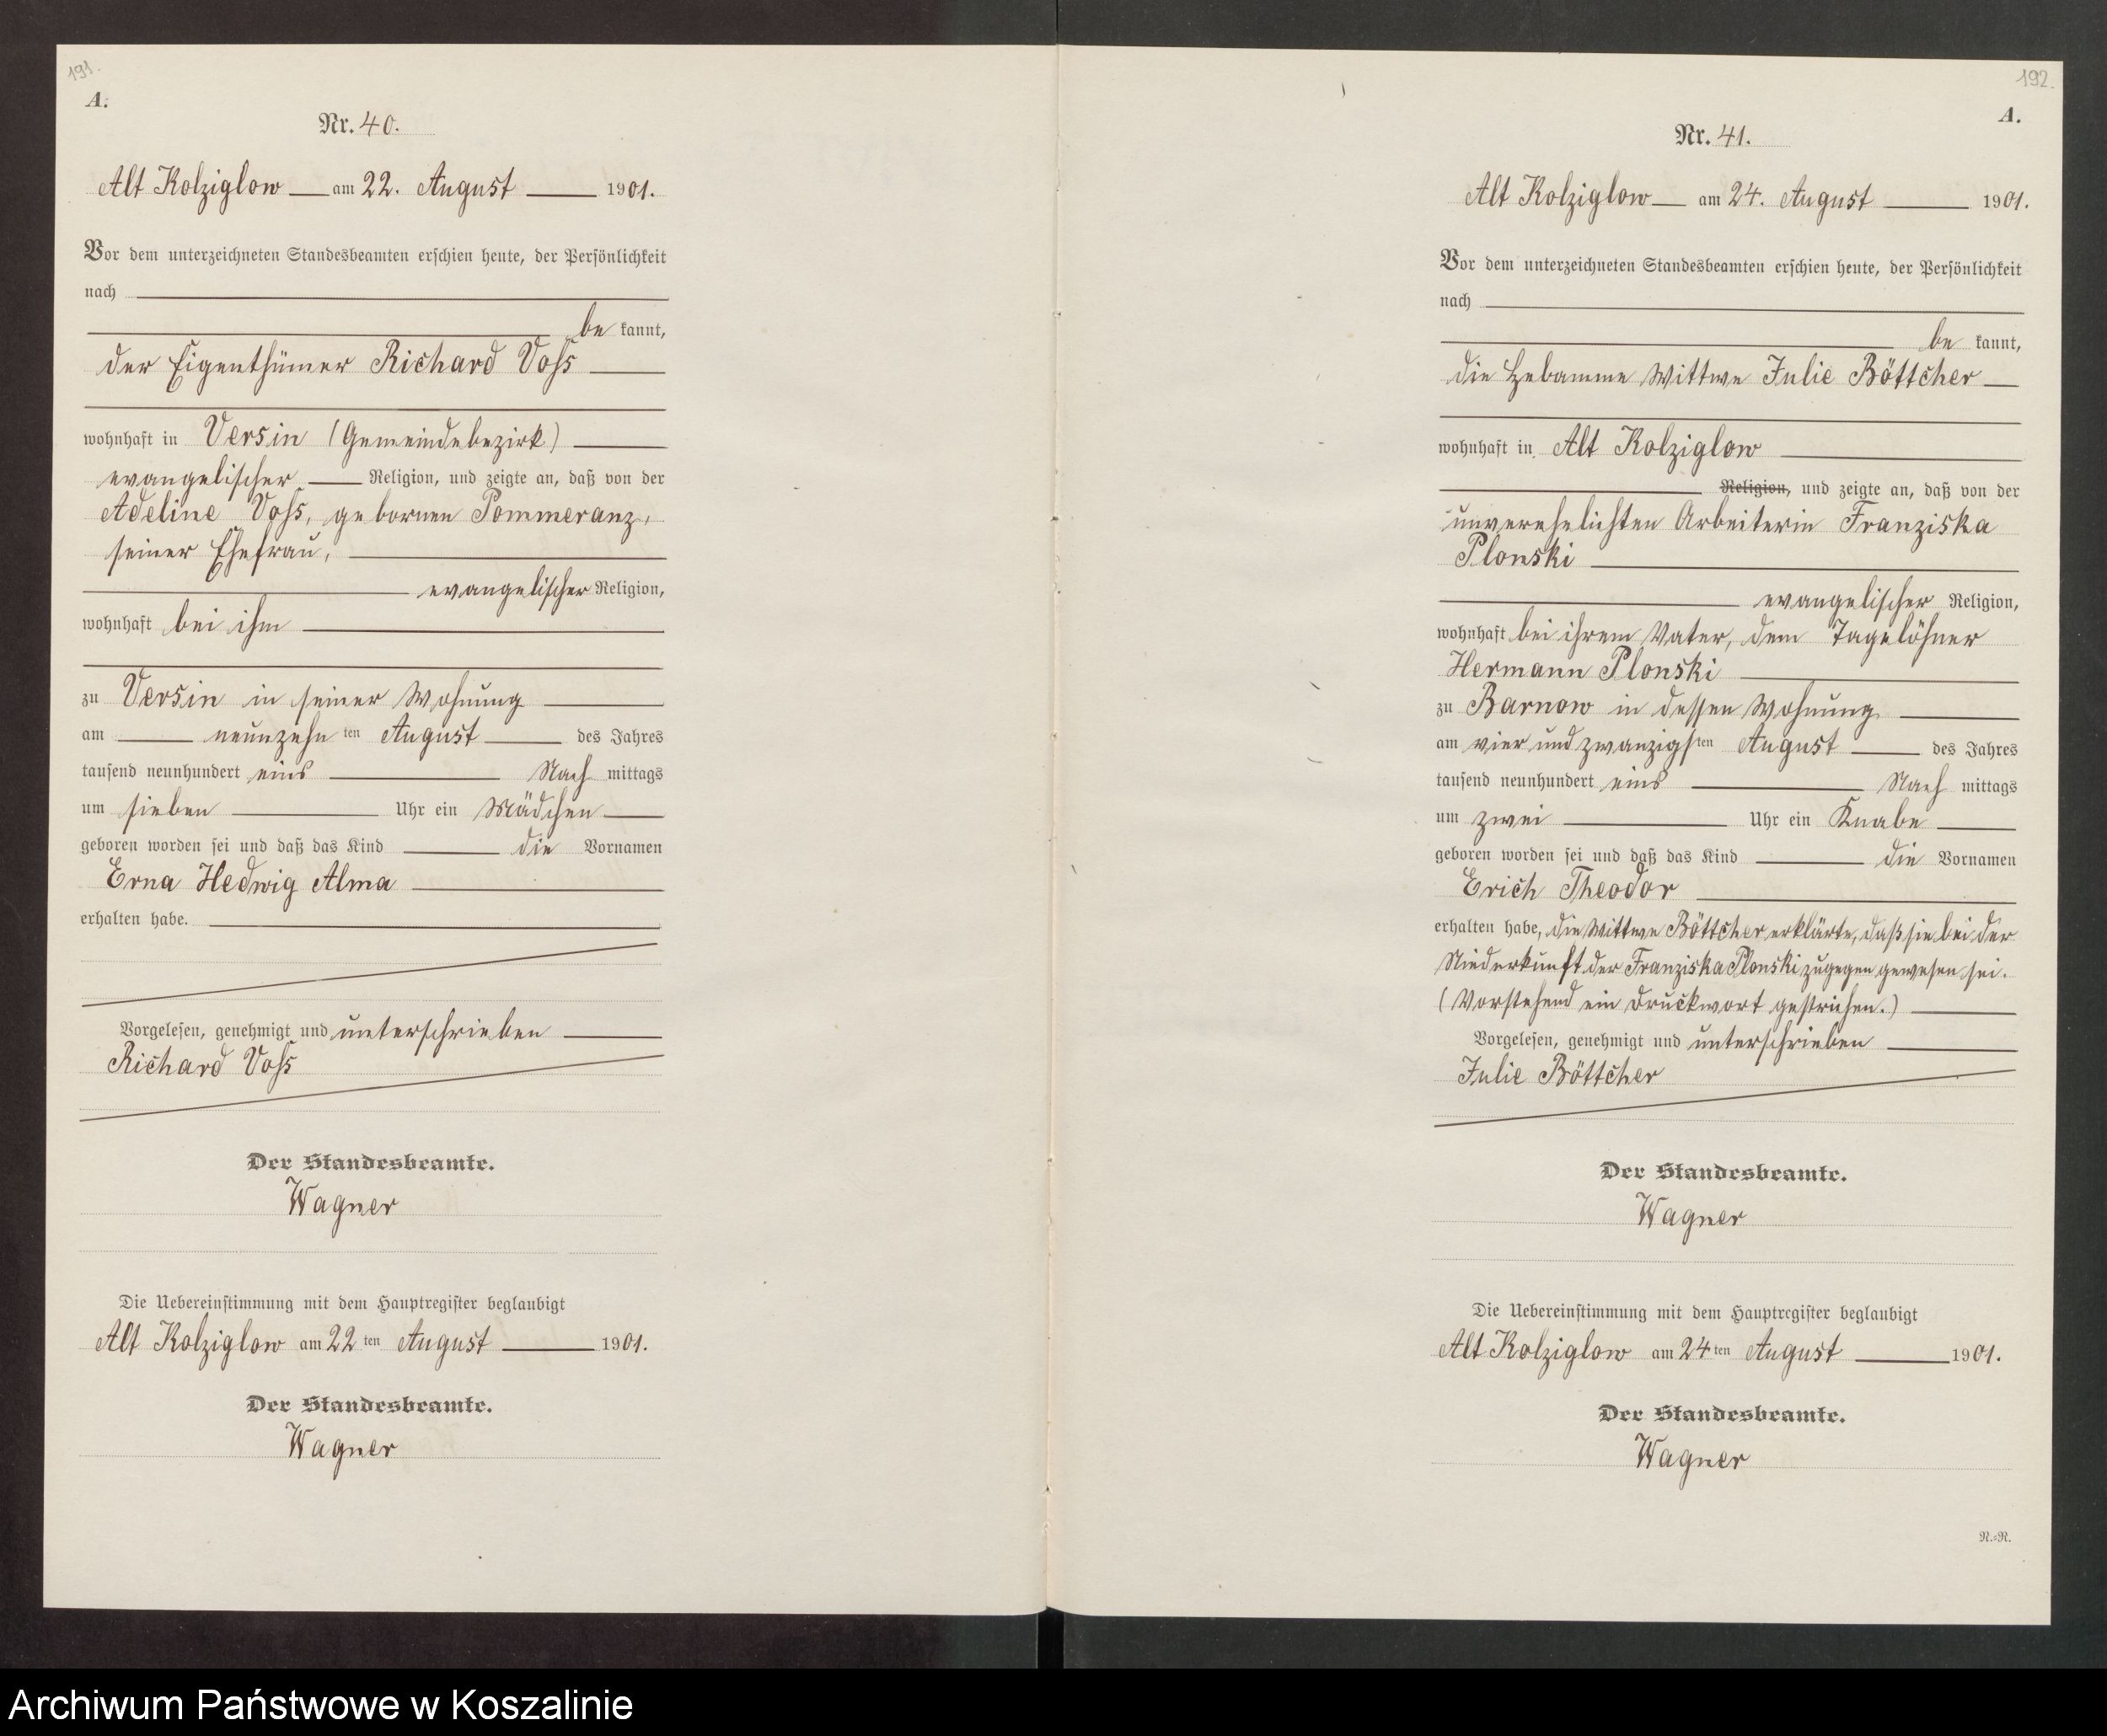 191.
A.
Nr. 40.
Alt Kolziglow am 22. August 1901.
Vor dem unterzeichneten Standesbeamten erschien heute, der Persönlichkeit
nach
be kannt,
der Eigenthümer Richard Voß
wohnhaft in Versin (Gemeindebezirk)
evangelischer Religion, und zeigte an, daß von der
Adeline Voß, gebornen Pommeranz,
seiner Ehefrau,
evangelischer Religion,
wohnhaft bei ihm
zu Versin in seiner Wohnung
am neunzehn ten August des Jahres
tausend neunhundert eins Nach mittags
um sieben Uhr ein Mädchen
geboren worden sei und daß das Kind die Vornamen
Erna Hedwig Alma
erhalten habe.
Vorgelesen, genehmigt und unterschrieben
Richard Voß
Der Standesbeamte.
Wagner
Die Uebereinstimmung mit dem Hauptregister beglaubigt
Alt Kolziglow am 22 ten August 1901.
Der Standesbeamte.
Wagner
192.
A.
Nr. 41.
Alt Kolziglow am 24. August 1901.
Vor dem unterzeichneten Standesbeamten erschien heute, der Persönlichkeit
nach
be kannt,
die Hebamme Wittwe Julie Böttcher
wohnhaft in Alt Kolziglow
Religion, und zeigte an, daß von der
unverehelichten Arbeiterin Franziska
Plonski
evangelischer Religion,
wohnhaft bei ihrem Vater, dem Tagelöhner
Hermann Plonski
zu Barnow in dessen Wohnung
am vier und zwanzigs ten August des Jahres
tausend neunhundert eins Nach mittags
um zwei Uhr ein Knabe
geboren worden sei und daß das Kind die Vornamen
Erich Theodor
erhalten habe, die Wittwe Böttcher erklärte, daß sie bei der
Niederkunft der Franziska Plonski zugegen gewesen sei.
(Vorstehend ein Druckwort gestrichen.)
Vorgelesen, genehmigt und unterschrieben
Julie Böttcher
Der Standesbeamte.
Wagner
Die Uebereinstimmung mit dem Hauptregister beglaubigt
Alt Kolziglow am 24 ten August 1901.
Der Standesbeamte.
Wagner
N.=R.
Archiwum Państwowe w Koszalinie